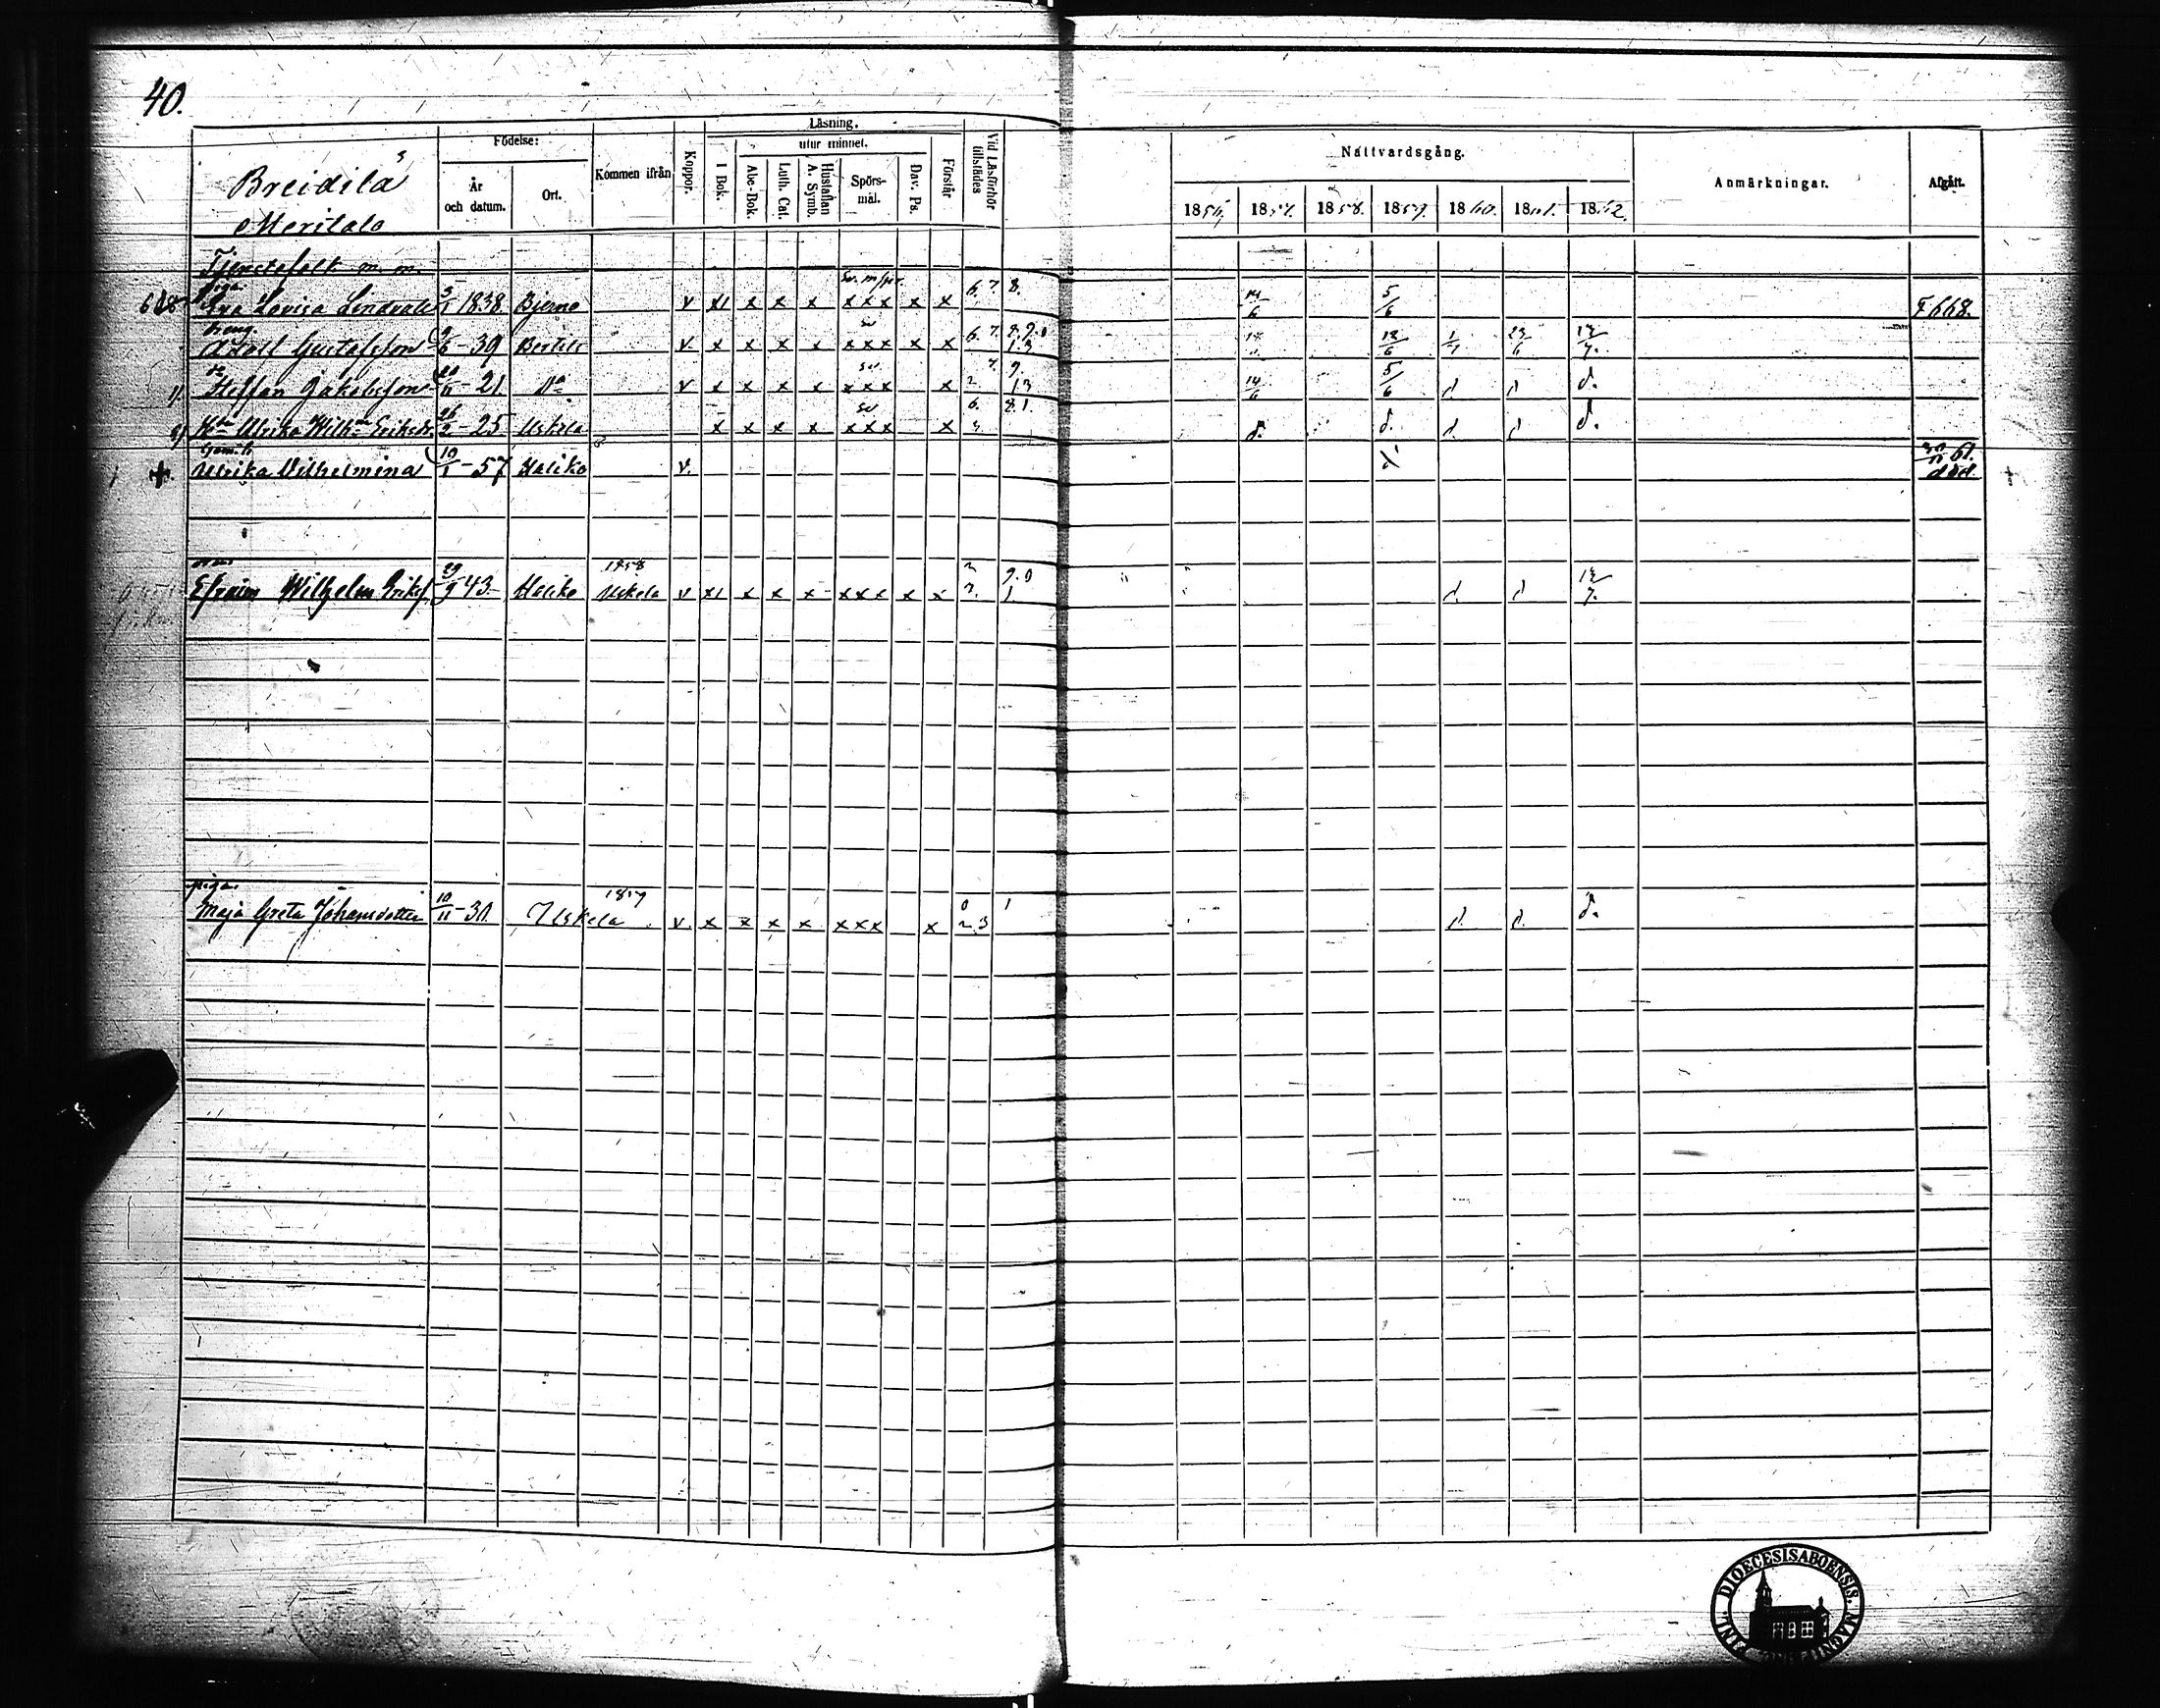 40.
Läsning.
Födelse:
utur minnet.
Breidilä
Meritalo
År och datum.
Ort.
Kommen ifrån
Koppor.
I Bok.
Abc-Bok.
Luth. Cat.
Hustaflan A. Symb.
Spörsmål.
Dav. Ps.
Förstår
Vid Läsförhör tillstädes
Nattvardsgång.
Anmärkningar.
Afgått.
1856. 1857. 1858. 1859. 1860. 1861. 1862.
Tjenstefolk m. m.
piga
Eva Lovisa 5/1 1838 Bjerno v x x x x x x x x x 6. 7 8. 14/6 5/6 F 668.
dreng.
Adolf Gustafsson 9/6 - 39 Bertils v x x x x x x x x x 6 7. 8. 9. 0 1 3 12/6 1/7 23/6 13/7.
Steffan Jakobsson - 21. Do v x x x x x x x x 7. 9. 2. 13 14/6 5/6 d d d.
Hu Ulrika Wilh: Eriksdr 26/2 - 25 Uskela x x x x x x x x 6. 8. 1. 3 d. d. d. d d.
Ulrika Vilhelmina 10/1 - 57 Haliko v. 61. död.
1858
Efraim Wilhelm Erikss. 29/9 43 Haliko Uskela v x x x x x x x x x 2 3. 9. 0 1 d. d 13/7.
piga. 1859
Maja Greta Johansdotter 10/11 - 30. Uskela v. x x x x x x x x 0 1 2. 3 d. d. d.
DIOECESIS ABOENSIS. MAGNI